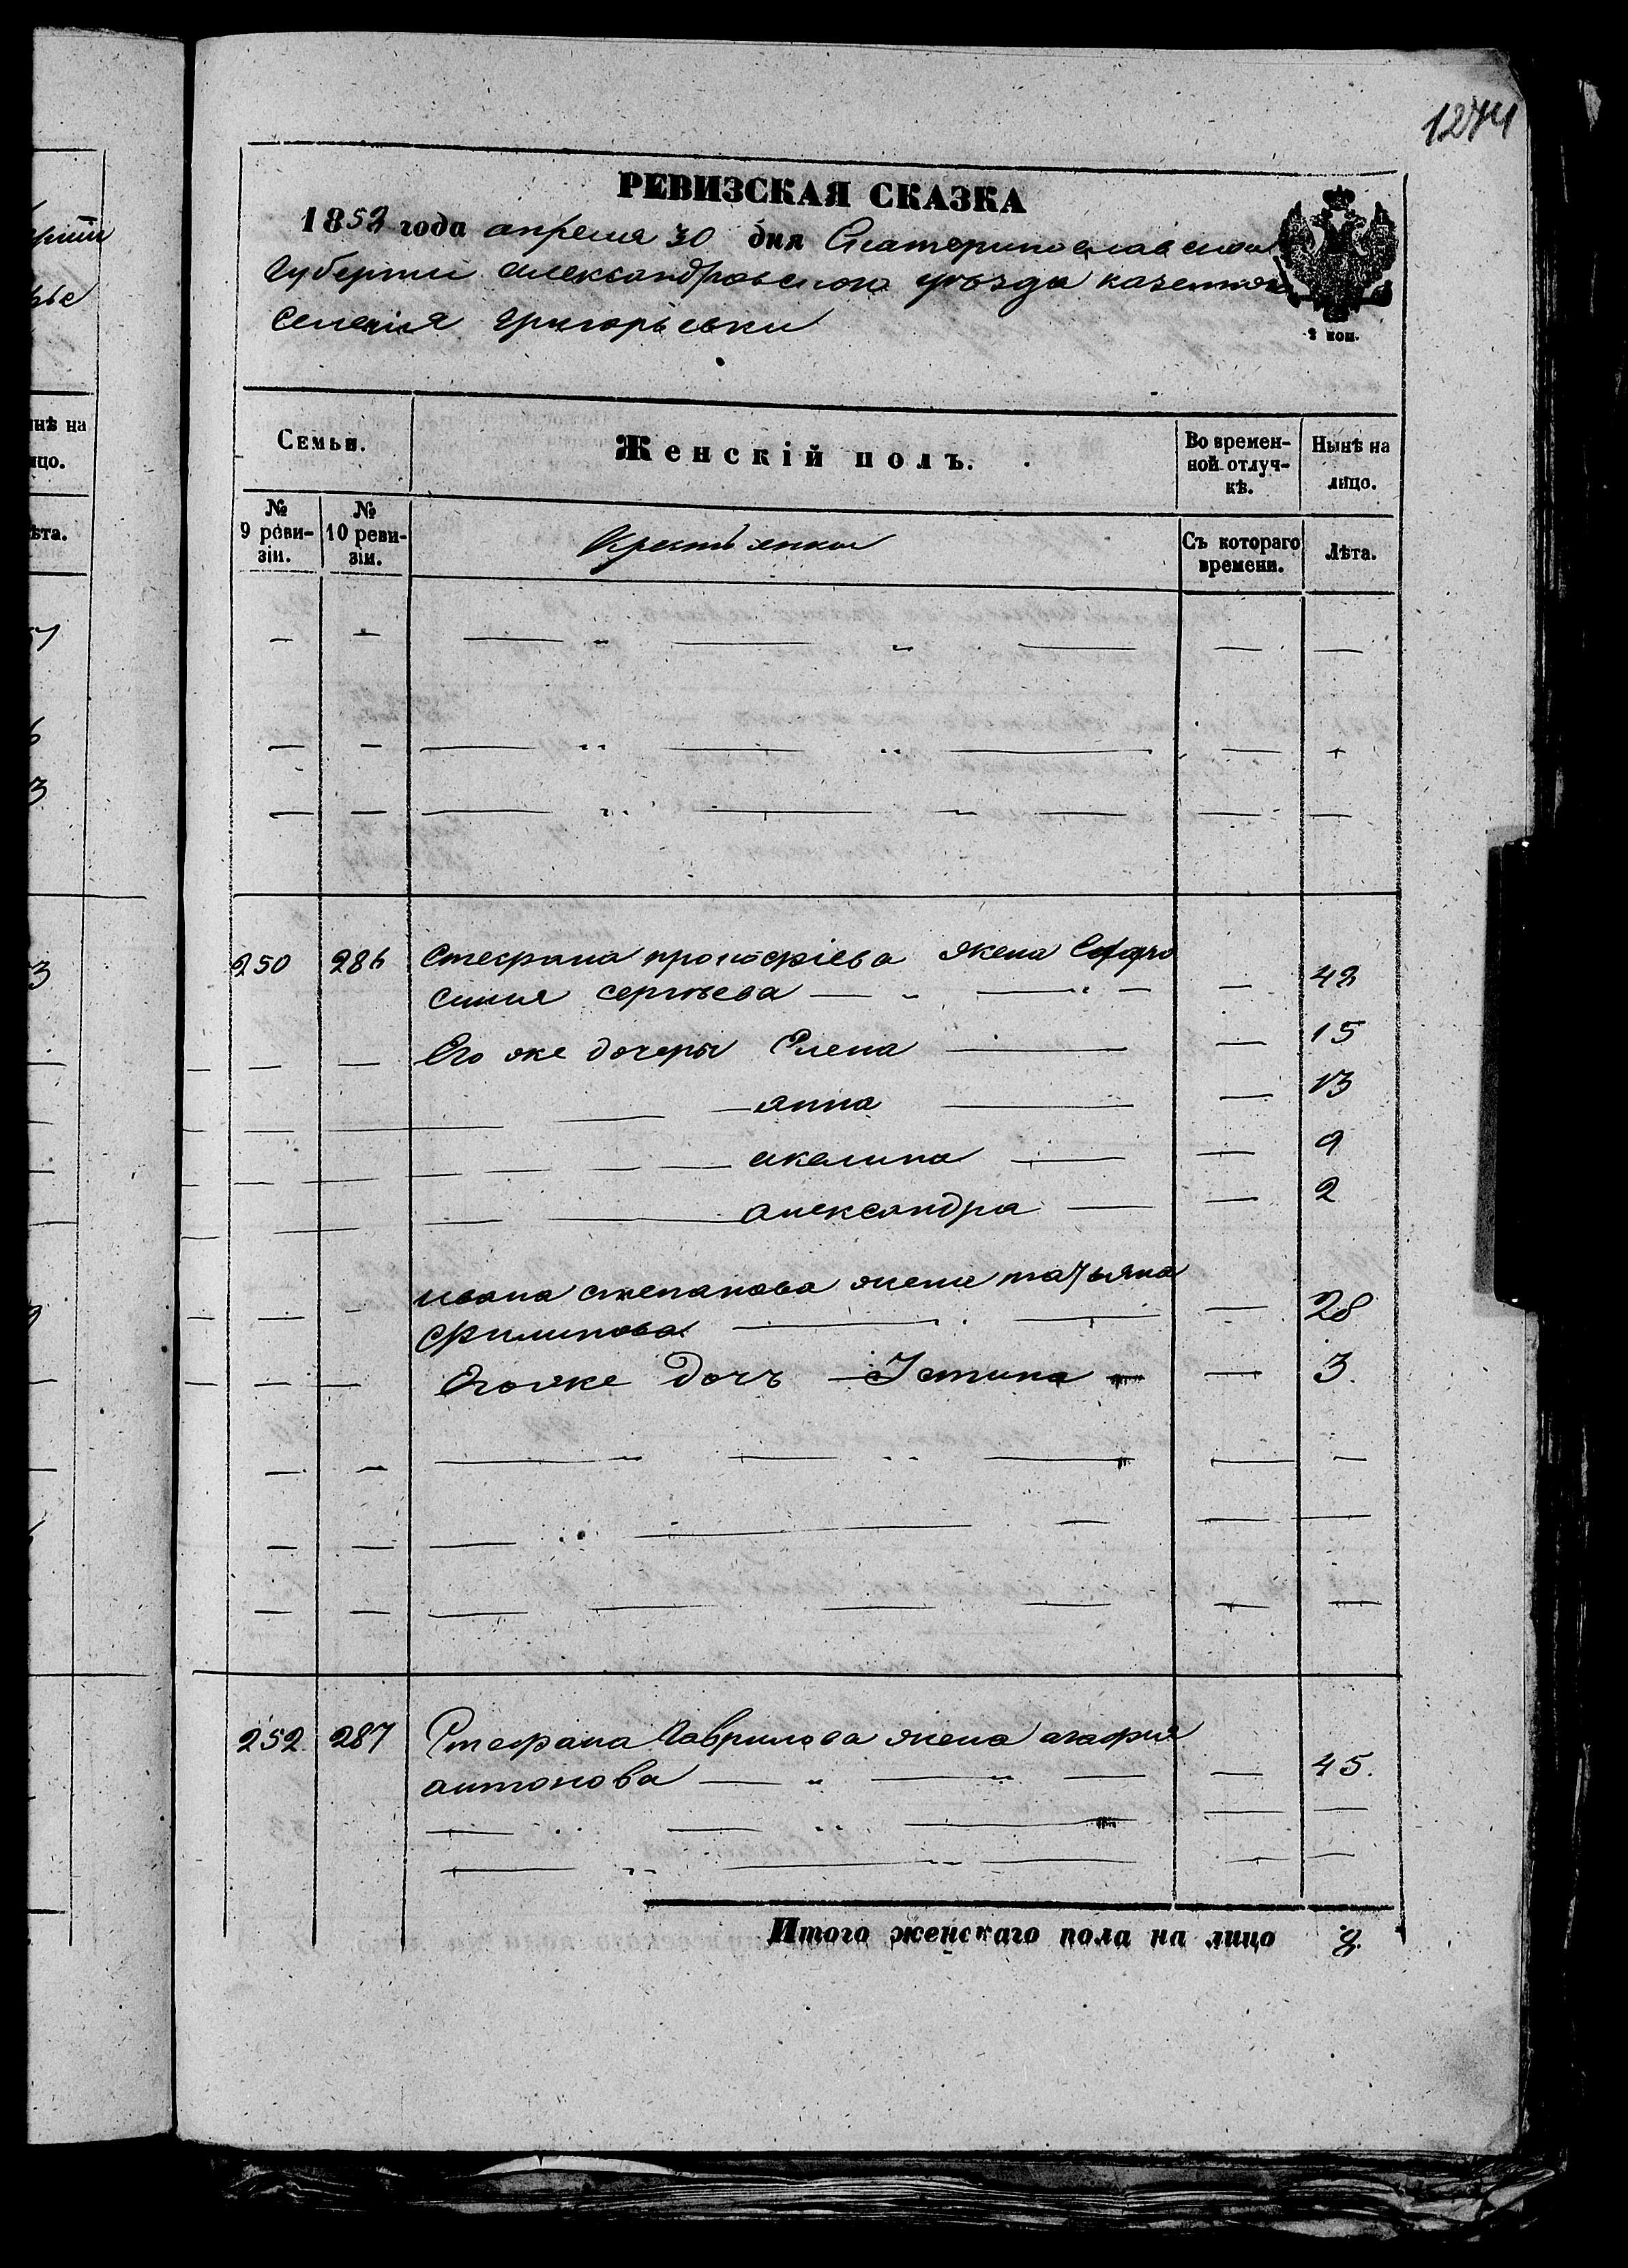 1274
РЕВИЗСКАЯ СКАЗКА
1858 года апреля 30 дня Екатеринославской
Губернии Александровского уѣзда казенного
Селенія Григорьевки
2 коп.
Семьи.
Женскій полъ.
Во времен-
ной отлуч-
кѣ.
Нынѣ на
лицо.
№
9 реви-
зіи.
№
10 реви-
зіи.
Крестьянки
Съ котораго
времени.
Лѣта.
250 286 Стефана прокофіева жена Ефро
синия сергѣева — „ — „ — — 42
— — Его же дочери Елена — — 15
— анна — — 13
— акилина — — 9
— александра — — 2
ивана степанова жена татьяна
филипова — — 28
— — Его же дочь — Устина — — 3.
252 287 Стефана Гаврилова жена агафия
антонова — „ — „ — — 45.
Итого женскаго пола на лицо 8.
нѣ на
ицо.
ѣта.